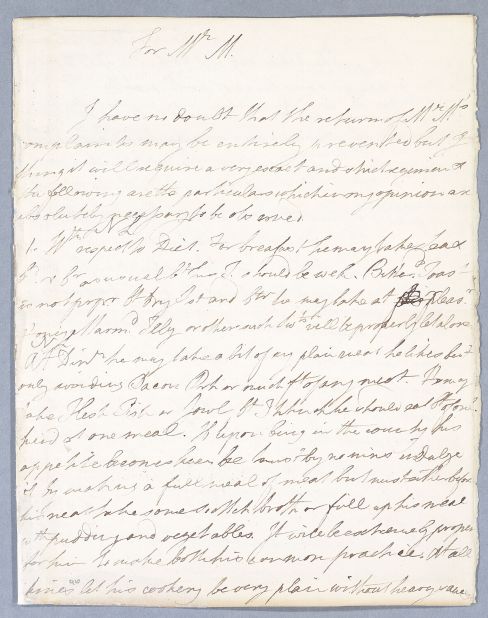 For Mr M.
I have no doubt that the return of Mr M's
complaints may be entirely prevented but I
think it will require a very exact and strict regimen &
the following are the particulars which in my opinion are
absolutely necessary to be observed
1. With respect to Diet. For breakfast he may take Tea &
as usual but his T. should be weak.
is not proper but dry Tst and Btr he may take at pleas
Marmd Jelly or other such will be properly let alone
At Dinr he may take a bit of any plain meat he likes but
only avoiding Bacon Pork or much ft of any meat. He may
take Flesh Fish or Fowl but I think he should eat but of one
kind at one meal. If upon being in the country his
appetite becomes keen he must by no means indulge
it by making a full meal of meat but must either before
his meat take some scotch broth or fill up his meal
with pudding and vegetables. It will be extremely proper
for him to make both his common practice. At all
times let his cookery be very plain without heavy sauce